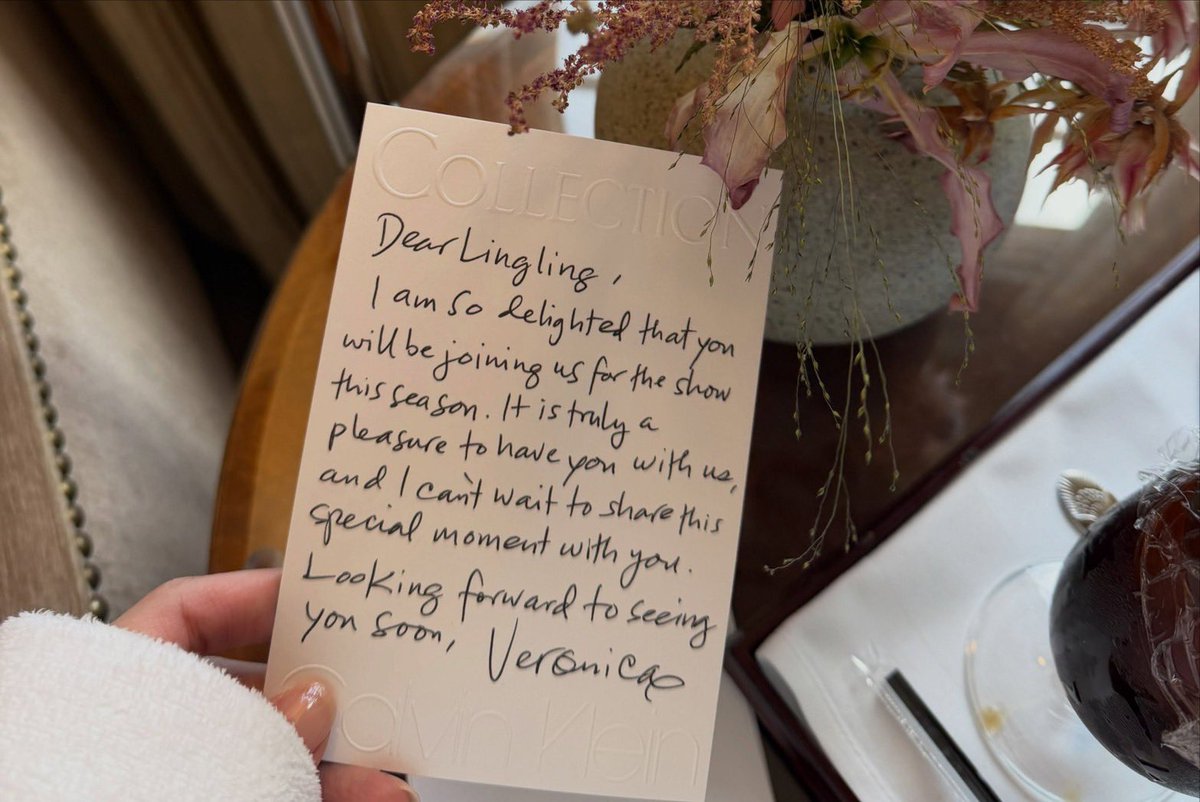 COLLECTION
Dear Lingling,
I am so delighted that you
will be joining us for the show
this season. It is truly a
pleasure to have you with us,
and I can't wait to share this
special moment with you.
Looking forward to seeing
you soon, Veronica
Calvin Klein